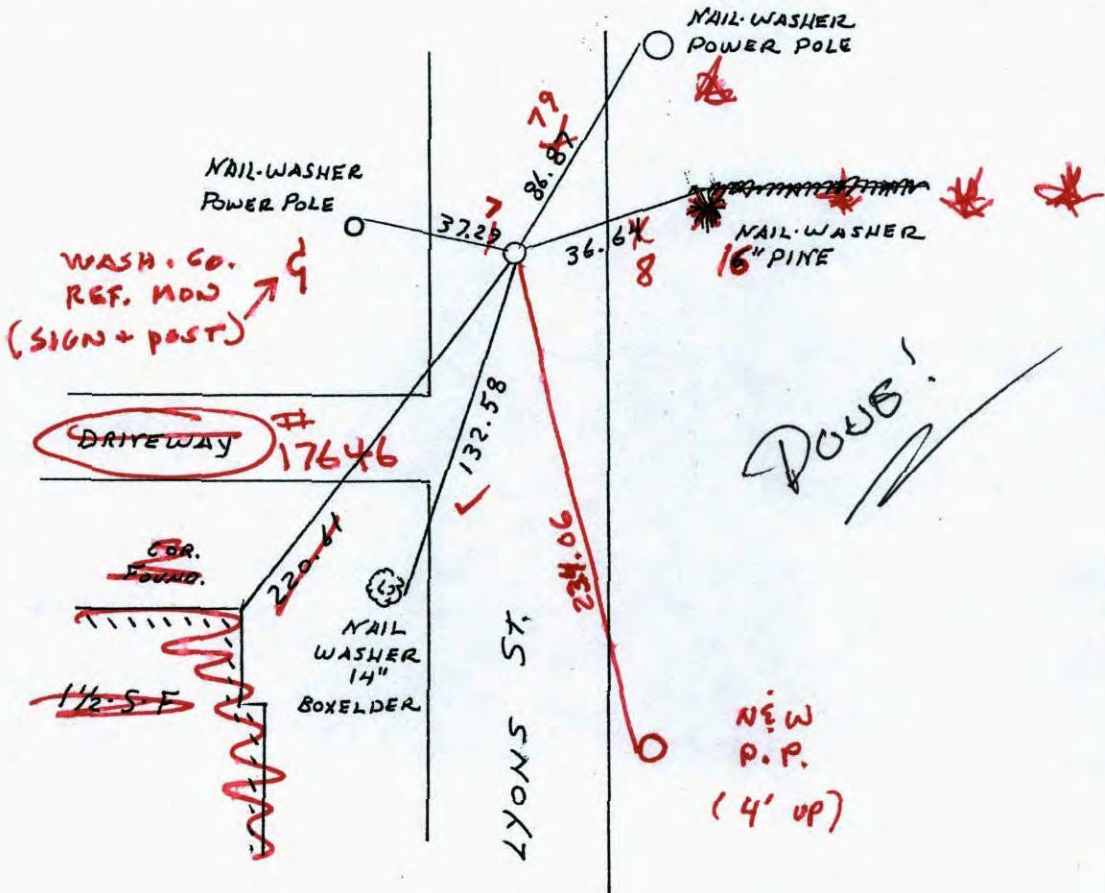 NAIL-WASHER
POWER POLE
79
86.87
NAIL-WASHER
POWER POLE
37.29
7
36.64
8
NAIL-WASHER
16" PINE
WASH. CO.
REF. MON
(SIGN + POST)
DRIVEWAY
#
17646
132.58
220.61
234.06
DONE!
COR.
FOUND.
1½-S-F
NAIL
WASHER
14"
BOXELDER
LYONS ST.
N&W
P.P.
(4' UP)